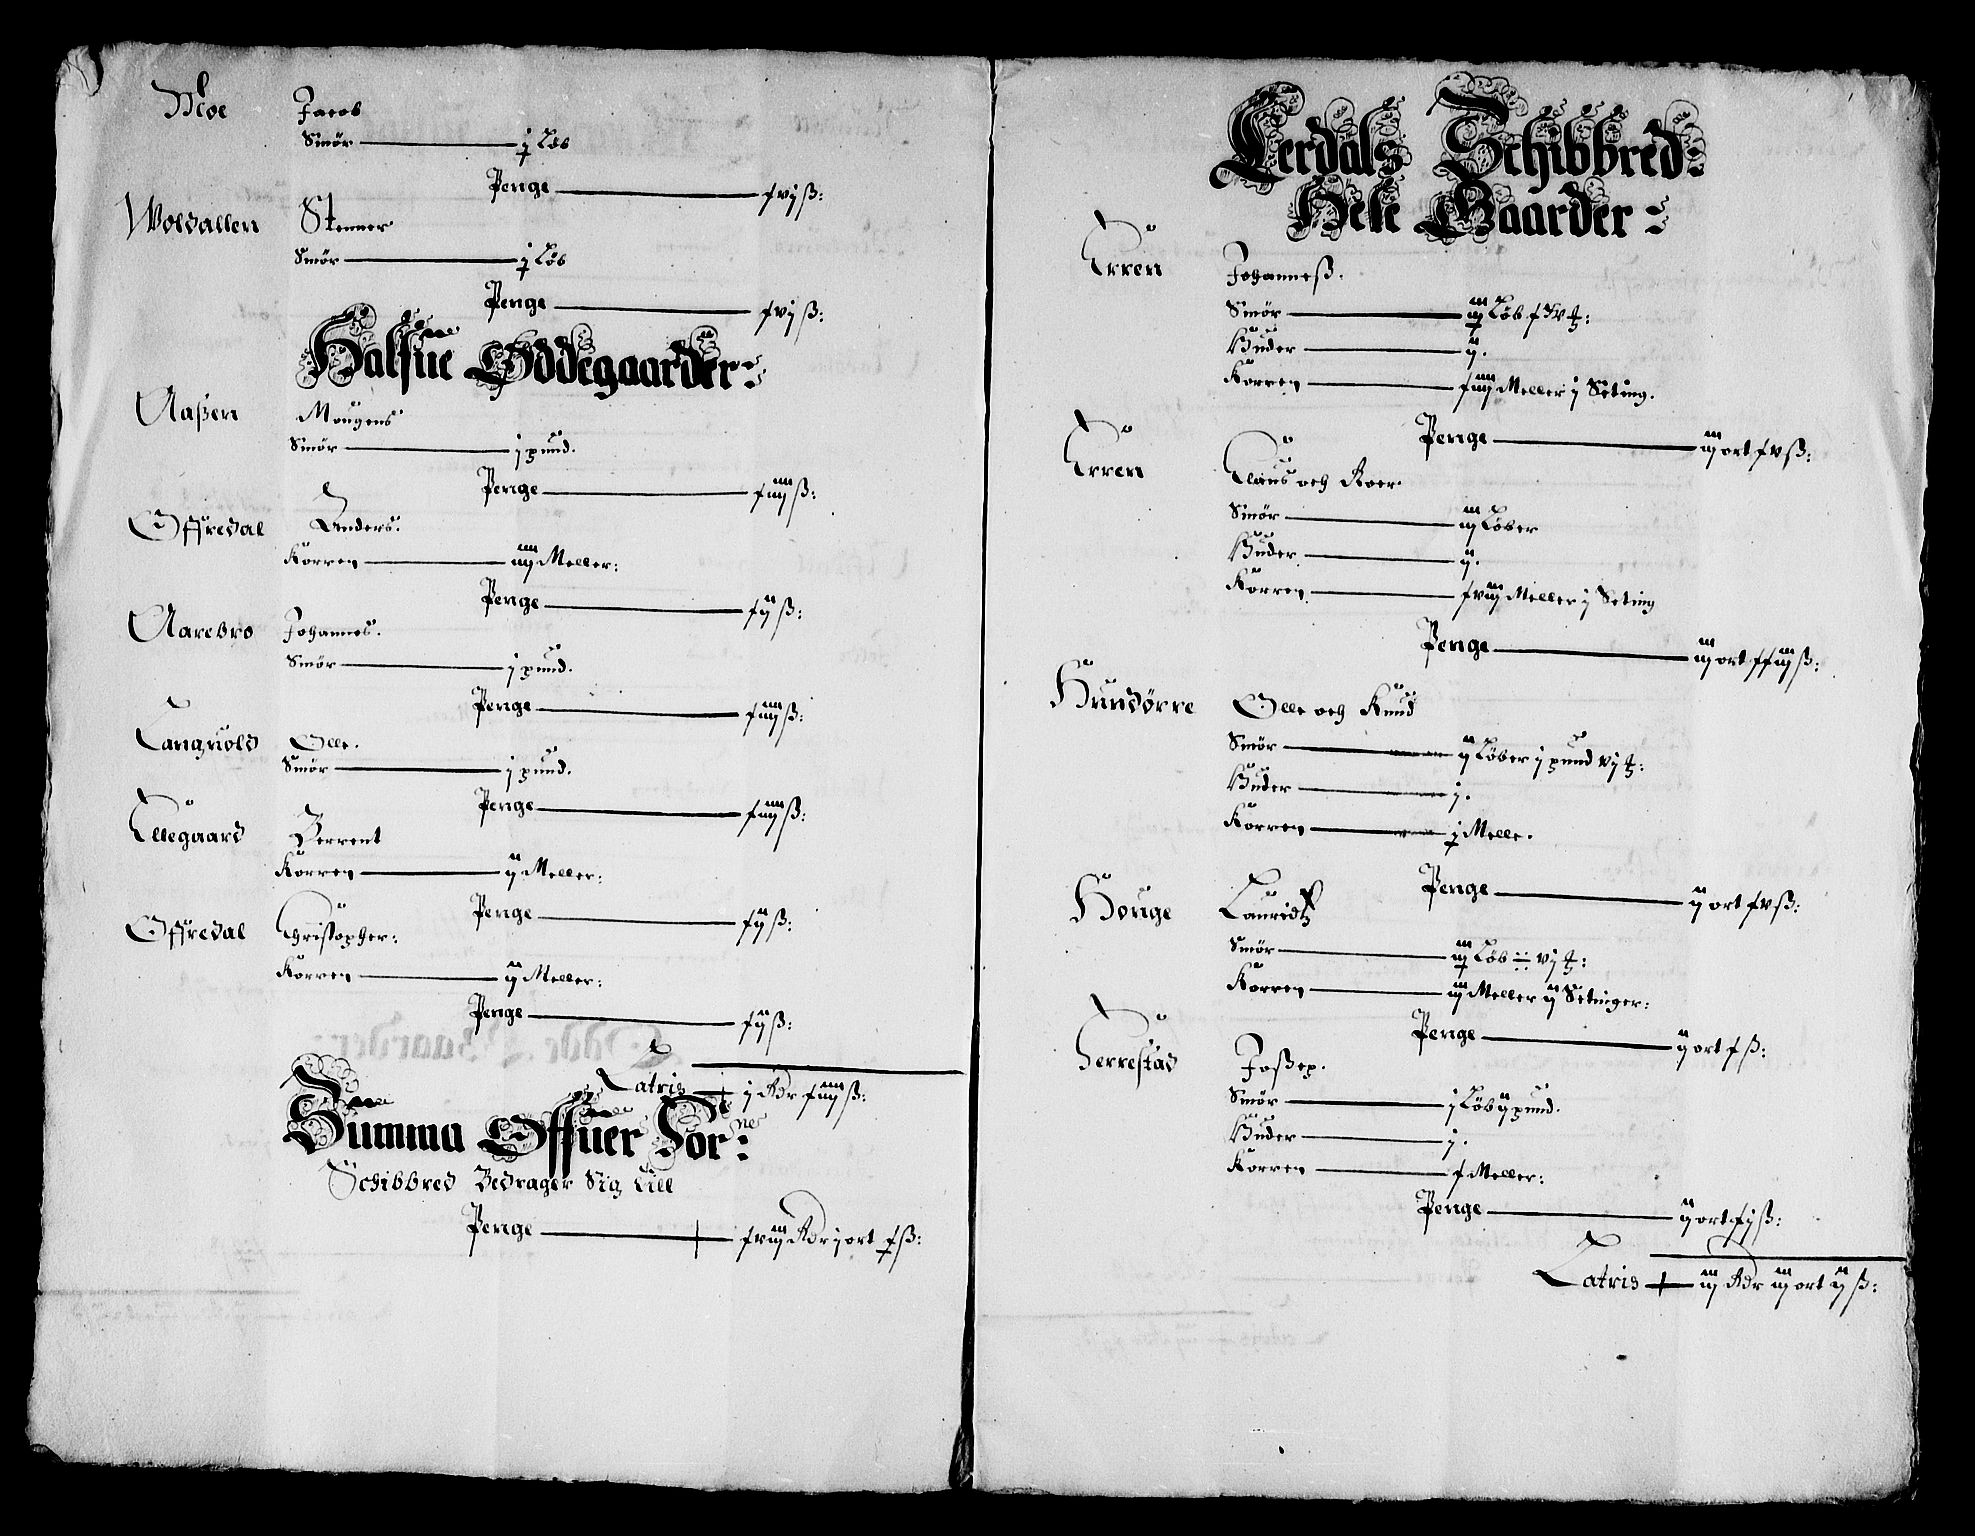 Moe Jacob
Smør — j Løb
Penge — xvj ß:
Woldallen Stenner
Smør — j Løb
Penge — xvj ß:
Halfue Ødegaarder:
Aaßen Mougens
Smør — j pund.
Penge — xiiij ß:
Offredal Anders.
Korren — iiij Meller:
Penge — xij ß:
Aarebro Johannes.
Smør — j pund.
Penge — xiiij ß:
Languold Olle.
Smør — j pund.
Penge — xiiij ß:
Ellegaard Berrent
Korren — ij Meller:
Penge — xij ß:
Offredal Christopher:
Korren — ij Meller:
Penge — xij ß:
Latris — j Rdr xiiij ß:
Summa Offuer Torne:
Schibbred Bedrager Sig till
Penge — xviij Rdr j ort x ß:
Lerdals Schibbred:
Hele Gaarder:
Erren Johanneß.
Smør — iij Løb xv
Huder — ij.
Korren — xiiij Meller j Seting.
Penge — iij ort xv ß:
Erren Claus och Roer
Smør — iij Løber
Huder — ij.
Korren — xviij Meller j Seting
Penge — iij ort xxiij ß:
Hundørre Olle och Knud
Smør — ij Løber j pund vj
Huder — j.
Korren — j Melle.
Penge — ij ort xv ß:
Houge Lauridtz
Smør — iij Løb vj
Korren — iij Meller ij Setinger:
Penge — ij ort x ß:
Ferrestad Joßep.
Smør — j Løb ij pund.
Huder — j.
Korren — x Meller:
Penge — ij ort xj ß:
Latris — iij Rdr iij ort ij ß: